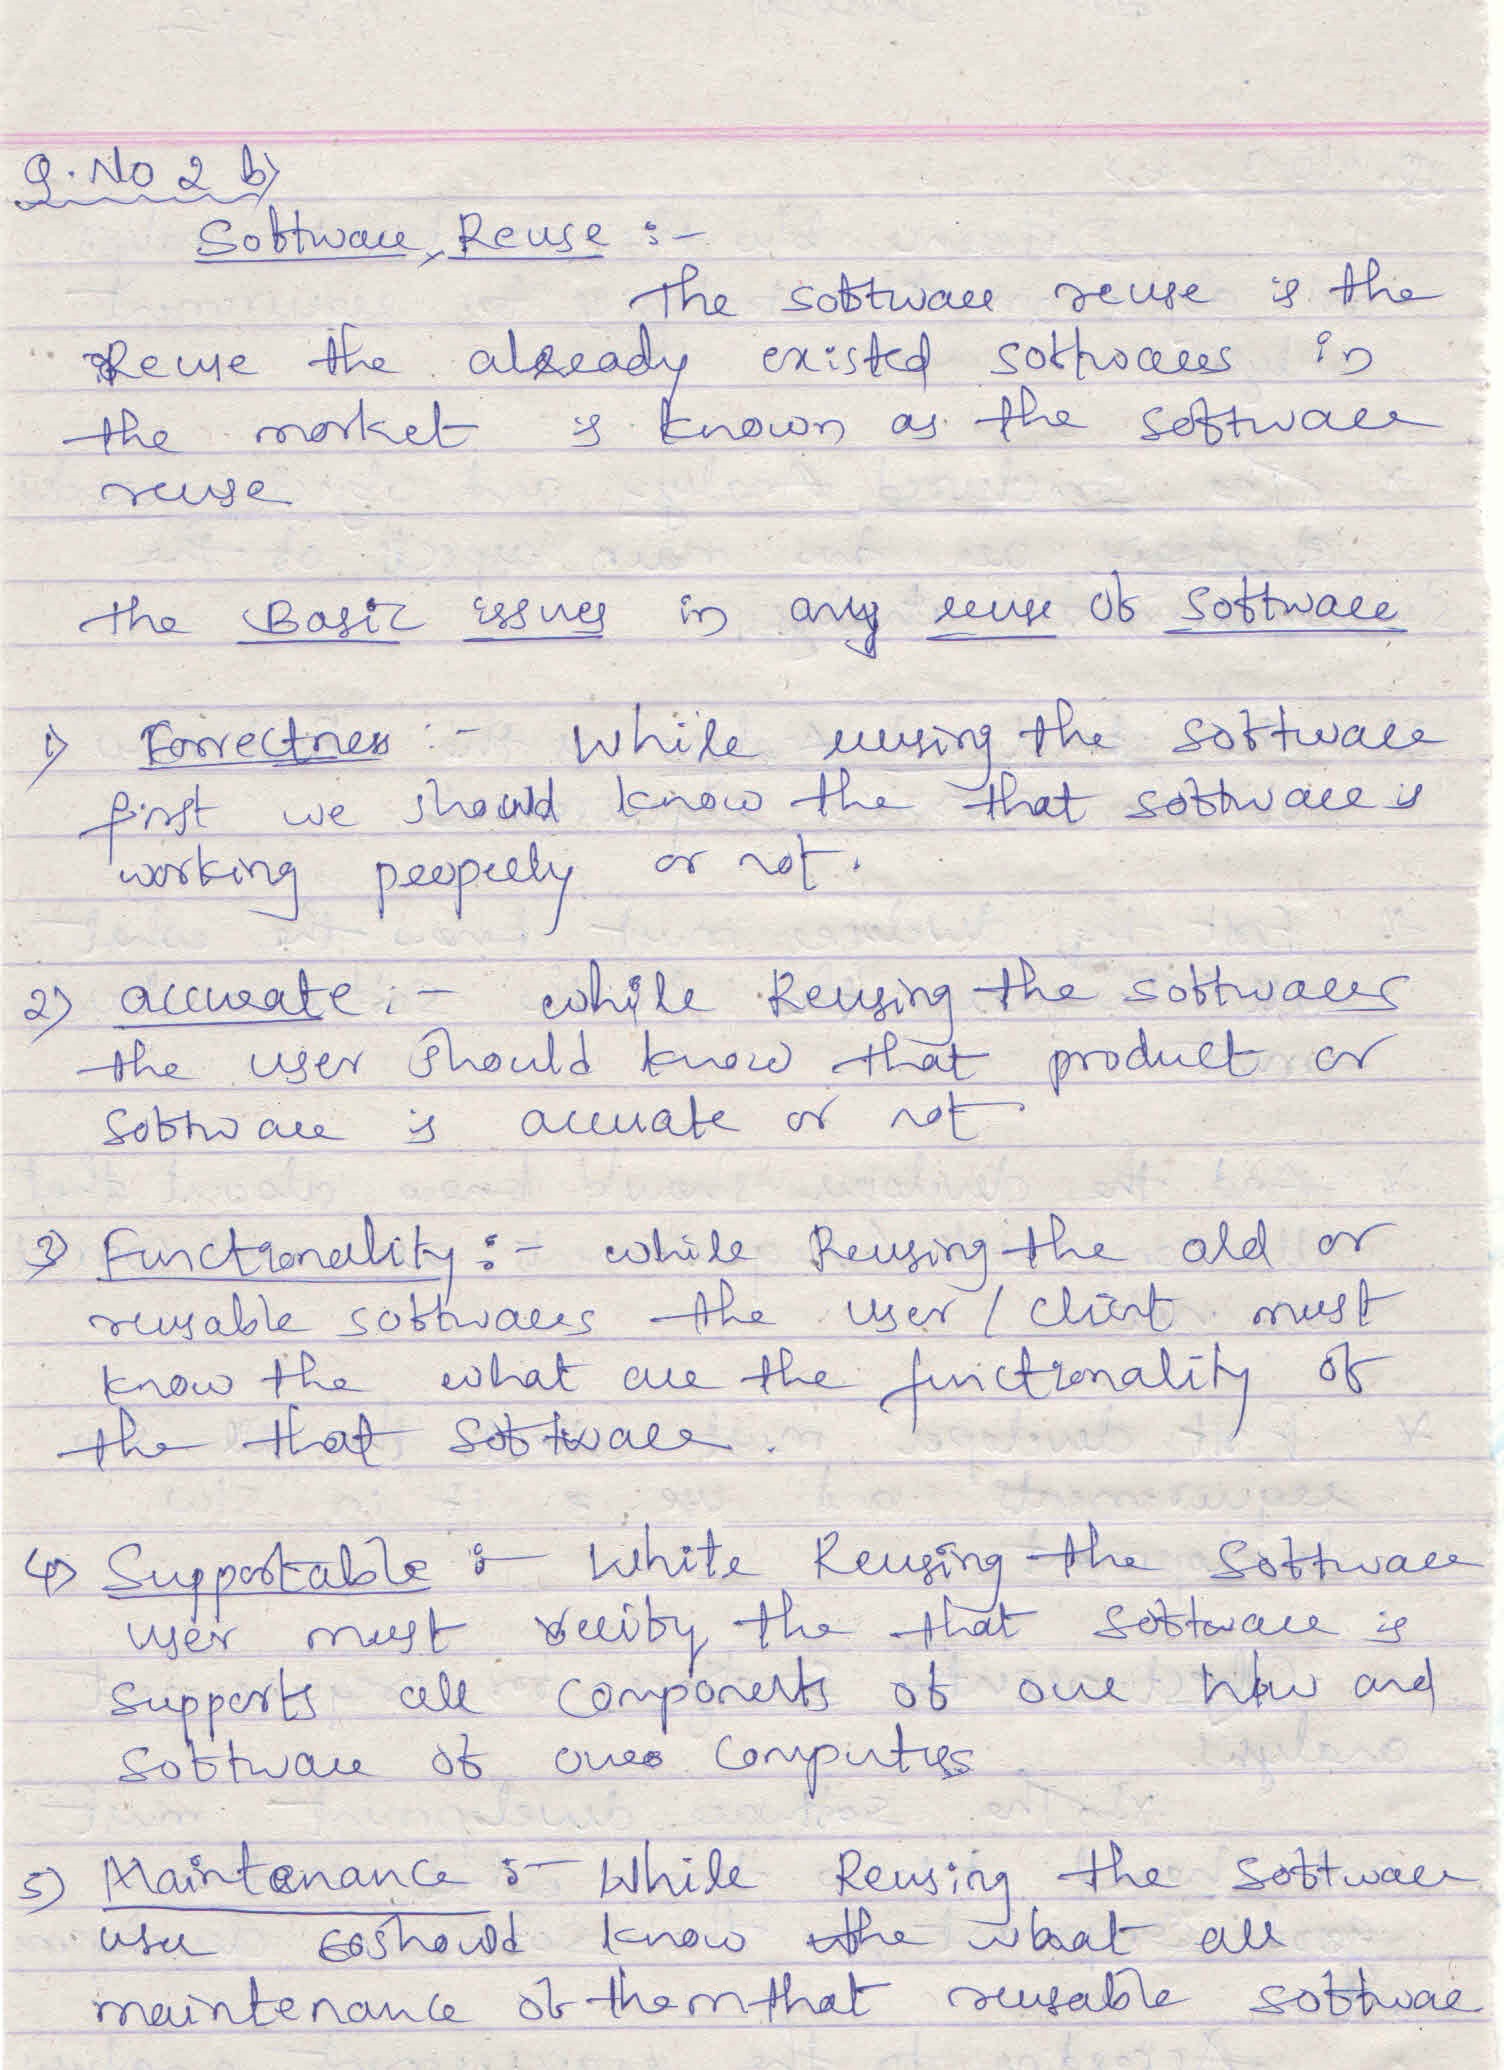 Q. No 2 b)
Software Reuse :-
The software reuse is the
Reuse the already existed softwares in
the market is known as the software
reuse
the Basic issues in any reuse of software
1) Correctness :- While reusing the software
first we should know the that software is
working properly or not.
2) accurate :- while Reusing the softwares
the user should know that product or
software is accurate or not
3) Functionality :- while Reusing the old or
reusable softwares the user / client must
know the what are the functionality of
the that software.
4) Supportable :- While Reusing the software
user must verify the that software is
supports all components of our h/w and
software of our computers
5) Maintenance :- While Reusing the software
user should know the what all
maintenance of them that reusable software